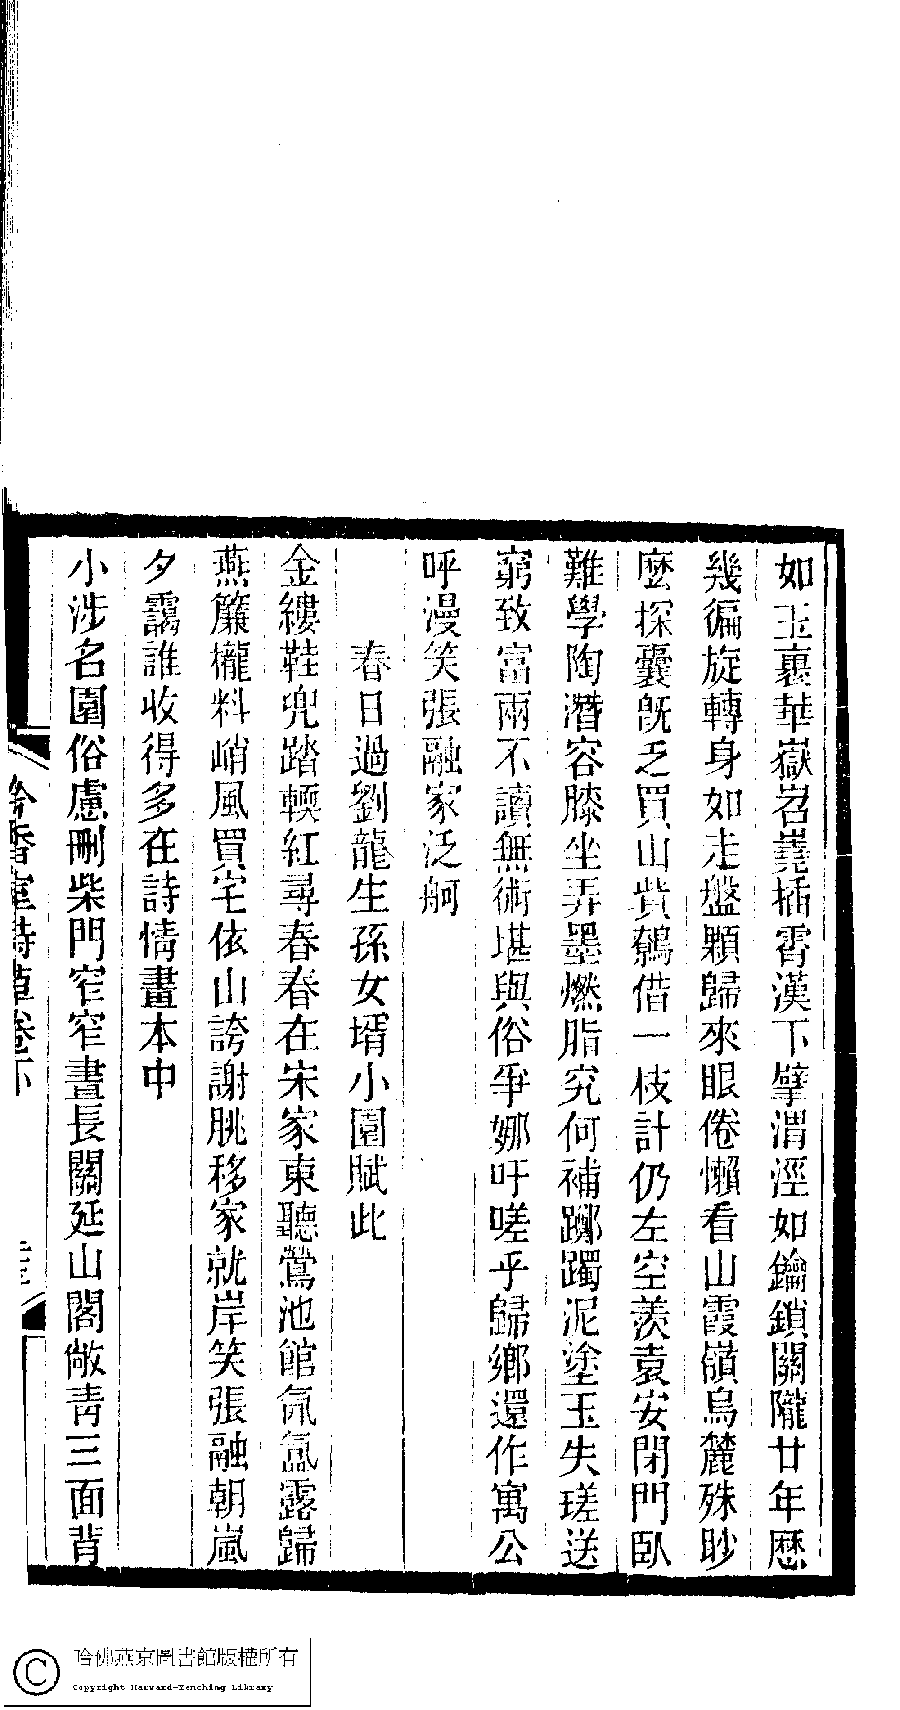 如玉裹華嶽岧嶤插霄漢下擘渭涇如鑰鎖關隴廿年歷
幾徧旋轉身如走盤顆歸來眼倦懶看山霞嶺烏麓殊眇
麽探囊旣乏買山貲鷦借一枝計仍左空羨袁安閉門臥
難學陶潛容膝坐弄墨燃脂究何補躑躅泥塗玉失瑳送
窮致富兩不讀無術堪與俗爭娜吁嗟乎歸鄉還作寓公
呼漫笑張融家泛舸
春日過劉龍生孫女壻小園賦此
金縷鞋兜踏輭紅尋春春在宋家東聽鶯池館氤氳露歸
燕簾櫳料峭風買宅依山誇謝朓移家就岸笑張融朝嵐
夕靄誰收得多在詩情畫本中
小涉名園俗慮刪柴門窄窄晝長關延山閣敞青三面背
吟香室詩草卷下
哈佛燕京圖書館版權所有
Copyright Harvard-Yenching Library